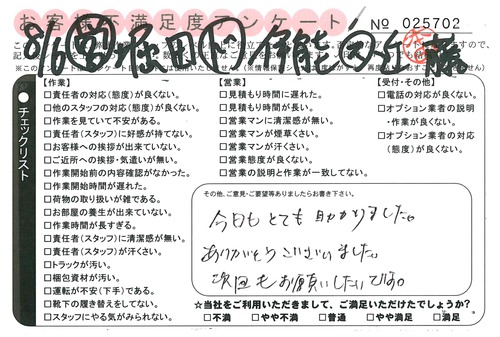 お客様不満足度アンケート
No 025702
8/6
チェックリスト
【作業】
□責任者の対応(態度)が良くない。
□他のスタッフの対応(態度)が良くない。
□作業を見ていて不安がある。
□責任者(スタッフ)に好感が持てない。
□お客様への挨拶が出来ていない。
□ご近所への挨拶・気遣いが無い。
□作業開始前の内容確認がなかった。
□作業開始時間が遅れた。
□荷物の取り扱いが雑である。
□お部屋の養生が出来ていない。
□作業時間が長すぎる。
□責任者(スタッフ)に清潔感が無い。
□責任者(スタッフ)が汗くさい。
□トラックが汚い。
□梱包資材が汚い。
□運転が不安(下手)である。
□靴下の履き替えをしてない。
□スタッフにやる気がみられない。
【営業】
□見積もり時間に遅れた。
□見積もり時間が長い。
□営業マンに清潔感が無い。
□営業マンが煙草くさい。
□営業マンが汗くさい。
□営業態度が良くない。
□営業の説明と作業が一致してない。
【受付・その他】
□電話の対応が良くない。
□オプション業者の説明
・作業が良くない。
□オプション業者の対応
(態度)が良くない。
その他、ご意見・ご要望等ありましたらお書き下さい。
今日も とても 助かりました。
ありがとうございました。
次回もお願いしたいです。
☆当社をご利用いただきまして、ご満足いただけたでしょうか?
□不満 □やや不満 □普通 □やや満足 □満足